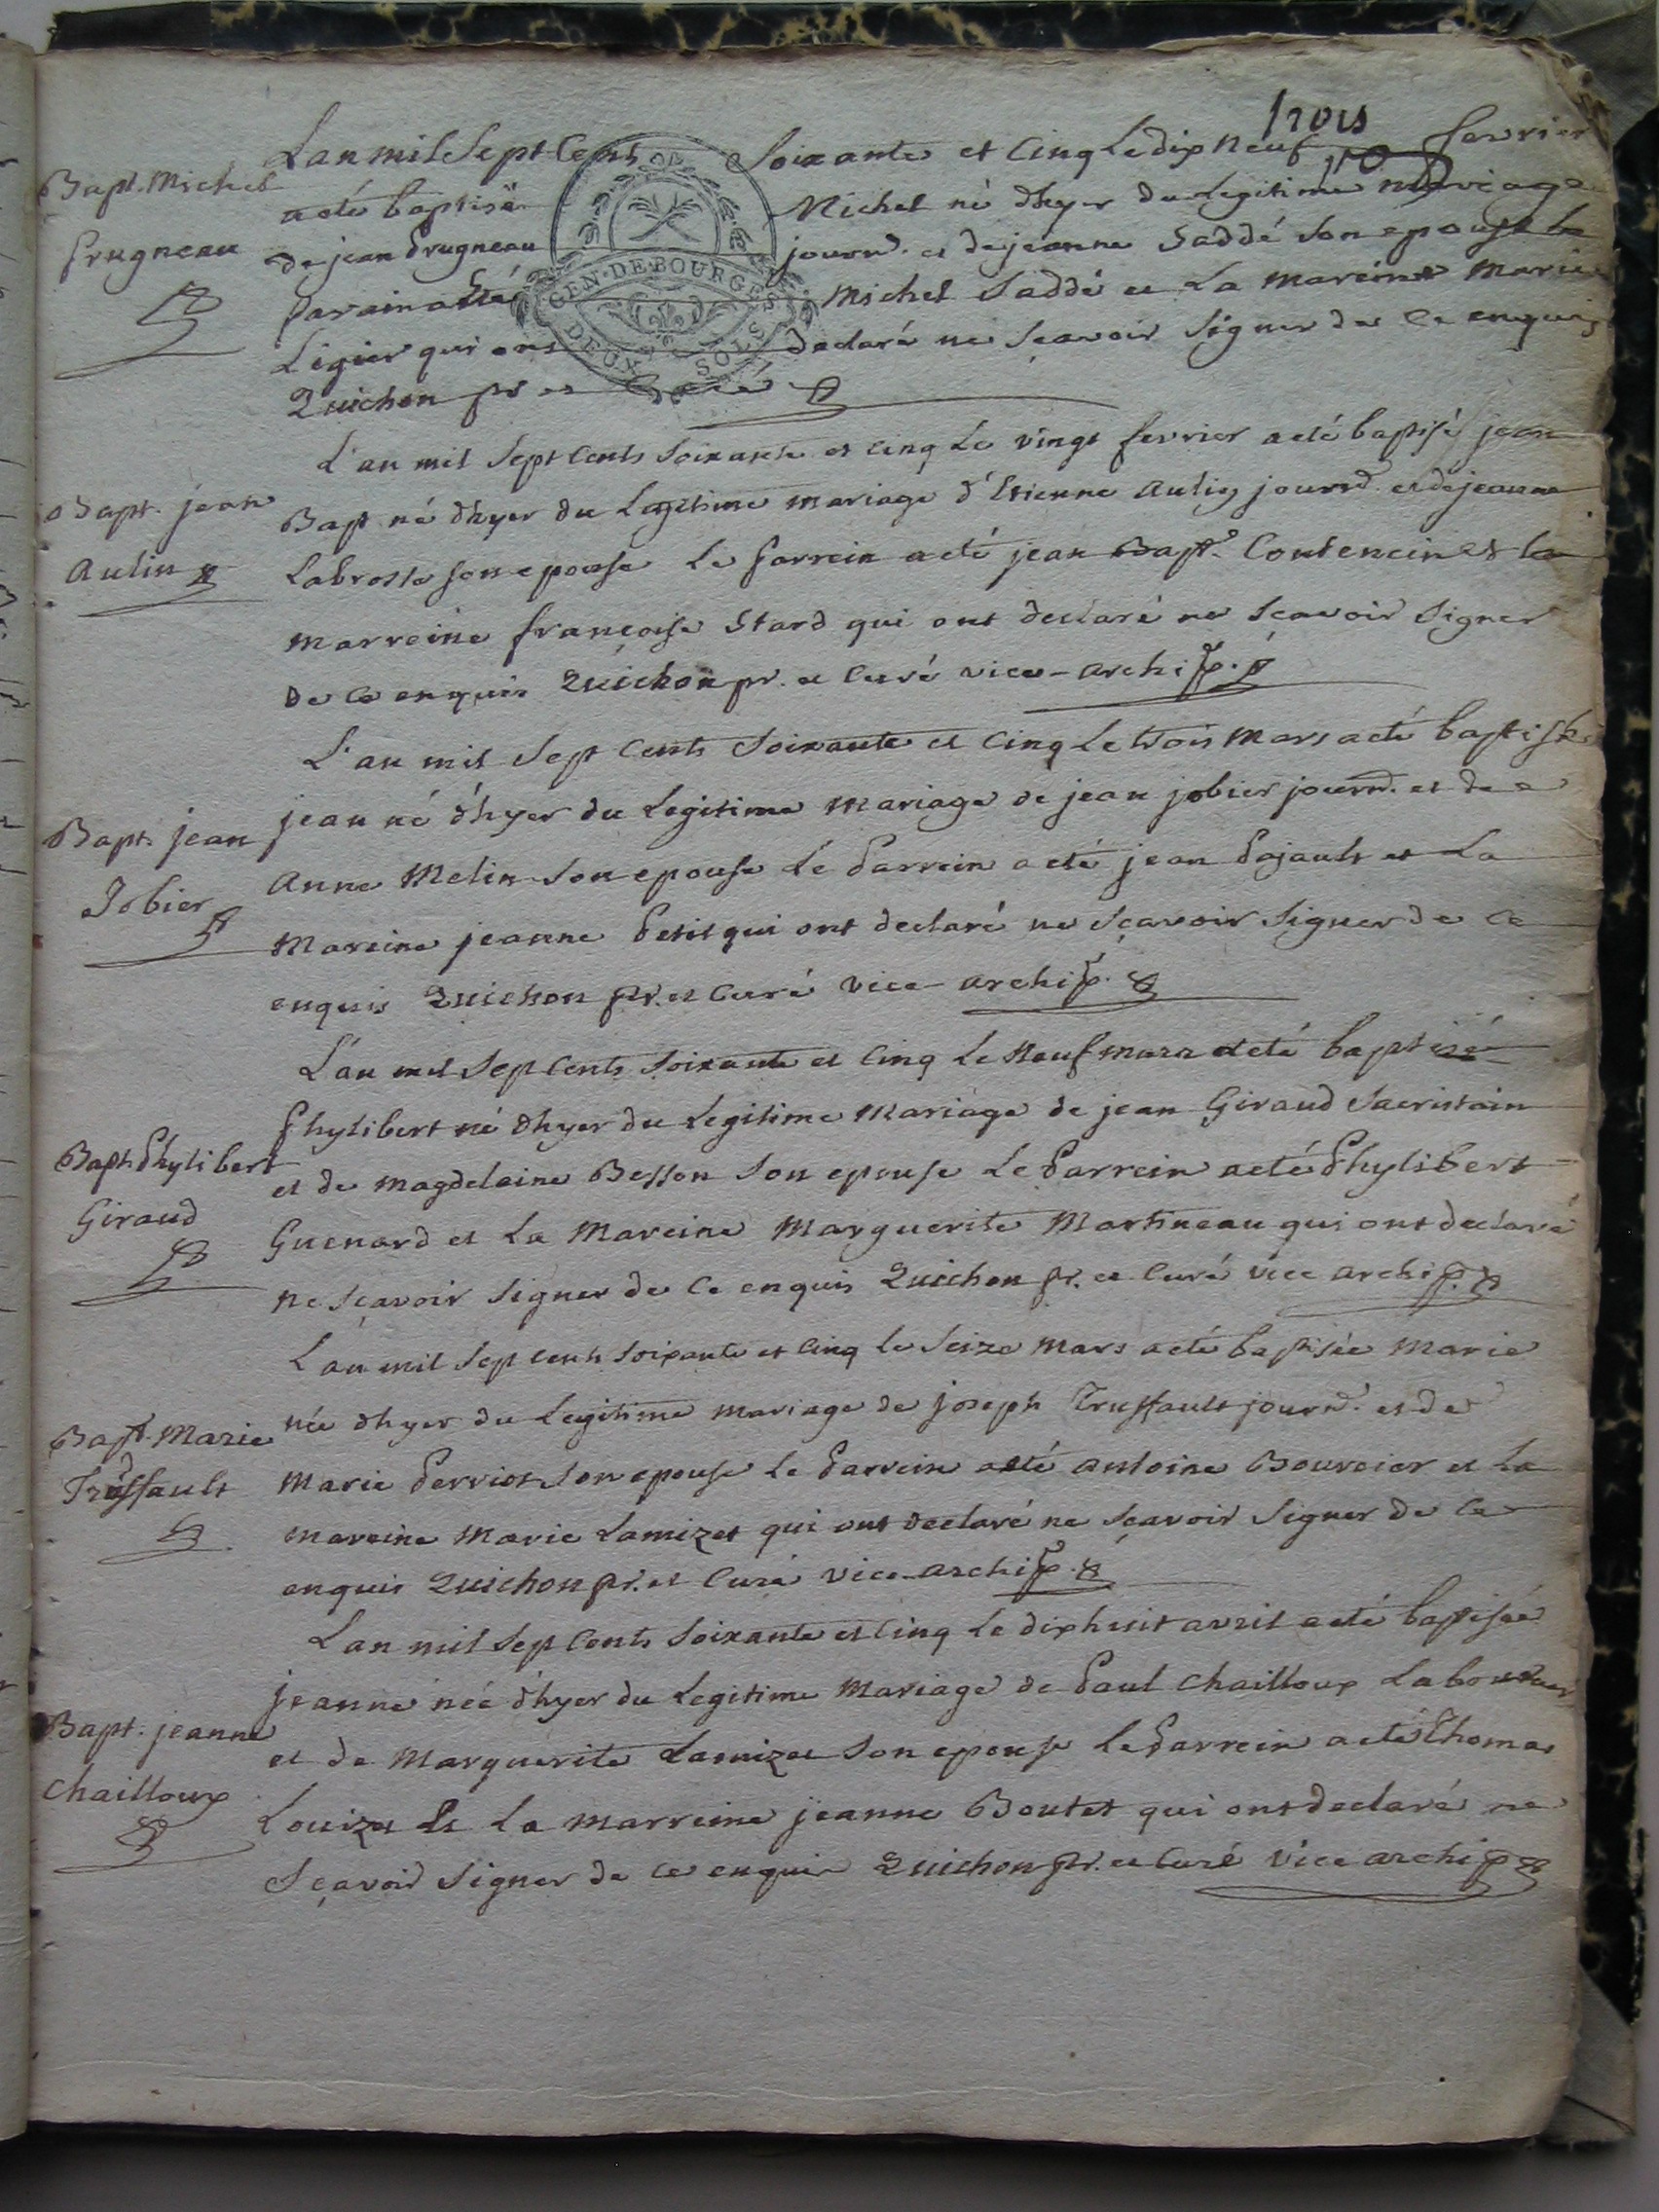 trois
Bapt. Michel
Prugneau
Lan mil Sept Cents Soixante et Cinq Le dix neuf fevrier
a été baptisé Michel né d'hyer du Legitime mariage
de jean Prugneau journ. et de jeanne Saddé son epouse Le
Parain a été Michel Saddé et La Mareine Marie
Ligier qui ont declaré ne sçavoir signer de ce enquis
Quichon pr et Curé
GEN·DE·BOURGES
DEUX SOLS
Bapt. jean
Aulin
L'an mil Sept Cents Soixante et Cinq Le vingt fevrier a été baptisé jean
Bapt né d'hyer du Legitime mariage d'Etienne Aulin journ. et de jeanne
Labrosse son epouse Le Parrein a été jean Bapt. Contencin et la
marreine françoise Stard qui ont declaré ne sçavoir signer
de ce enquis Quichon pr. et Curé vice-archip.
Bapt. jean
Jobier
L'an mil Sept Cents Soixante et Cinq Le trois Mars a été baptisé
jean né d'hyer du Legitime Mariage de jean jobier journ. et de
Anne Melin son epouse Le Parrein a été jean Pajault et La
Mareine jeanne Petit qui ont declaré ne sçavoir signer de ce
enquis Quichon pr. et Curé vice-archip.
Bapt. Phylibert
Giraud
L'an mil Sept Cents Soixante et Cinq Le Neuf mars a été baptisé
Phylibert né d'hyer du Legitime Mariage de jean Giraud Sacristain
et de Magdeleine Besson Son epouse Le Parrein a été Phylibert
Guenard et La Mareine Marguerite Martineau qui ont declaré
ne sçavoir signer de ce enquis Quichon pr. et Curé vice archip.
Bapt. Marie
Truffault
L'an mil Sept cents Soixante et Cinq le Seize Mars a été baptisée Marie
née d'hyer du Legitime mariage de joseph Truffault journ. et de
Marie Perriot Son epouse Le Parrein a été Antoine Bourcier et La
mareine Marie Lamizet qui ont declaré ne sçavoir signer de ce
enquis Quichon pr. et Curé vice-archip.
Bapt. jeanne
Chailloux
L'an mil Sept Cents Soixante et Cinq Le dix huit avril a été baptisée
jeanne née d'hyer du Legitime Mariage de Paul Chailloux Laboureur
et de Marguerite Lamizet Son epouse Le Parrein a été Thomas
Louizet et La marreine jeanne Boutet qui ont declaré ne
Sçavoir signer de ce enquis Quichon pr. et Curé vice archip